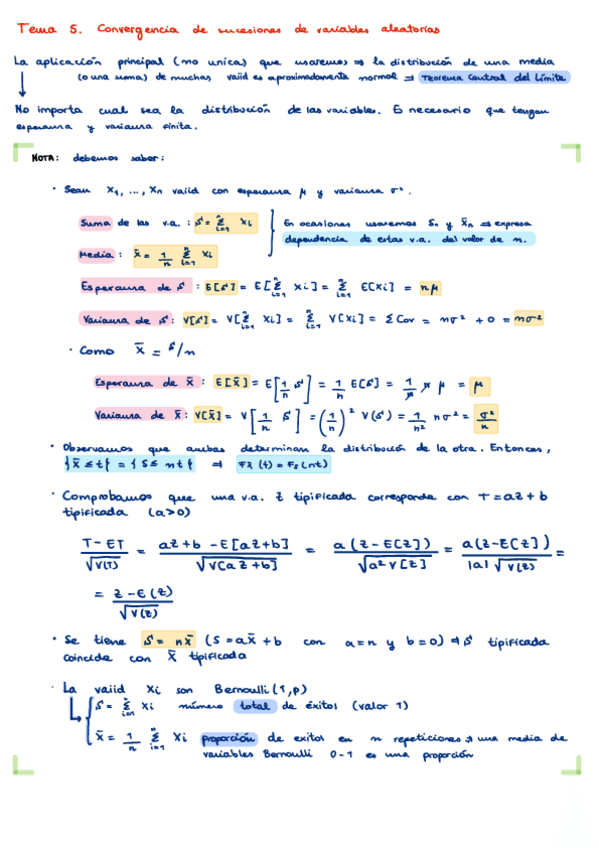 Tema 5. Convergencia de sucesiones de variables aleatorias
La aplicación principal (no unica) que usaremos ⇒ la distribución de una media
(o una suma) de muchas vaiid es aproximadamente normal ⇒ Teorema Central del Límite
No importa cual sea la distribución de las variables. Es necesario que tengan
esperanza y varianza finita.
NOTA: debemos saber:
· Sean X₁, ..., Xn vaiid con esperanza μ y varianza σ².
Suma de las v.a. : S = Σ_{i=1}^{n} Xi
En ocasiones usaremos Sn y X̄n ⇒ expresa
dependencia de estas v.a. del valor de n.
Media : X̄ = 1/n Σ_{i=1}^{n} Xi
Esperanza de S : E[S] = E[Σ_{i=1}^{n} Xi] = Σ_{i=1}^{n} E[Xi] = nμ
Varianza de S: V[S] = V[Σ_{i=1}^{n} Xi] = Σ_{i=1}^{n} V[Xi] = ΣCov = nσ² + 0 = nσ²
· Como X̄ = S/n
Esperanza de X̄ : E[X̄] = E[1/n S] = 1/n E[S] = 1/n n μ = μ
Varianza de X̄ : V[X̄] = V[1/n S] = (1/n)² V(S) = 1/n² nσ² = σ²/n
· Observamos que ambas determinan la distribución de la otra. Entonces,
{X̄ ≤ t} = {S ≤ nt} ⇒ Fx̄ (t) = Fs (nt)
· Comprobamos que una v.a. Z tipificada corresponde con T = aZ + b
tipificada (a>0)
T - ET / √V(T) = aZ+b - E[aZ+b] / √V[aZ+b] = a(Z - E[Z]) / √a² V[Z] = a(Z-E[Z]) / |a| √V(Z) =
= Z - E(Z) / √V(Z)
· Se tiene S = nX̄ (S = aX̄ + b con a=n y b=0) ⇒ S tipificada
coincide con X̄ tipificada
· La vaiid Xi son Bernoulli (1,p)
S = Σ_{i=1}^{n} Xi número total de éxitos (valor 1)
X̄ = 1/n Σ_{i=1}^{n} Xi proporción de exitos en n repeticiones, una media de
variables Bernoulli 0-1 es una proporción